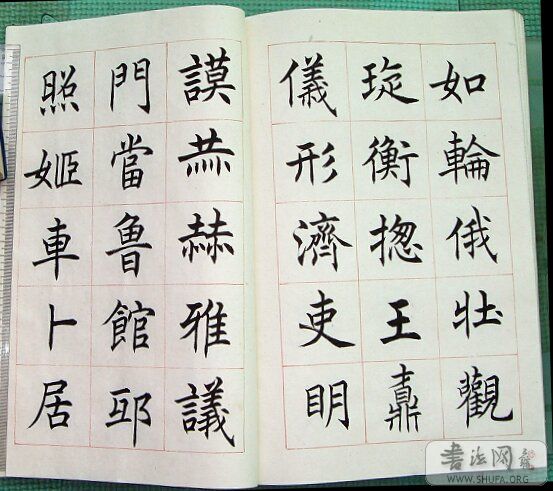 如輪俄壯觀
琁衡揔王
儀形濟吏明
謨赫雅議
門當魯館
照姬車卜居
书法网
WWW.SHUFA.ORG